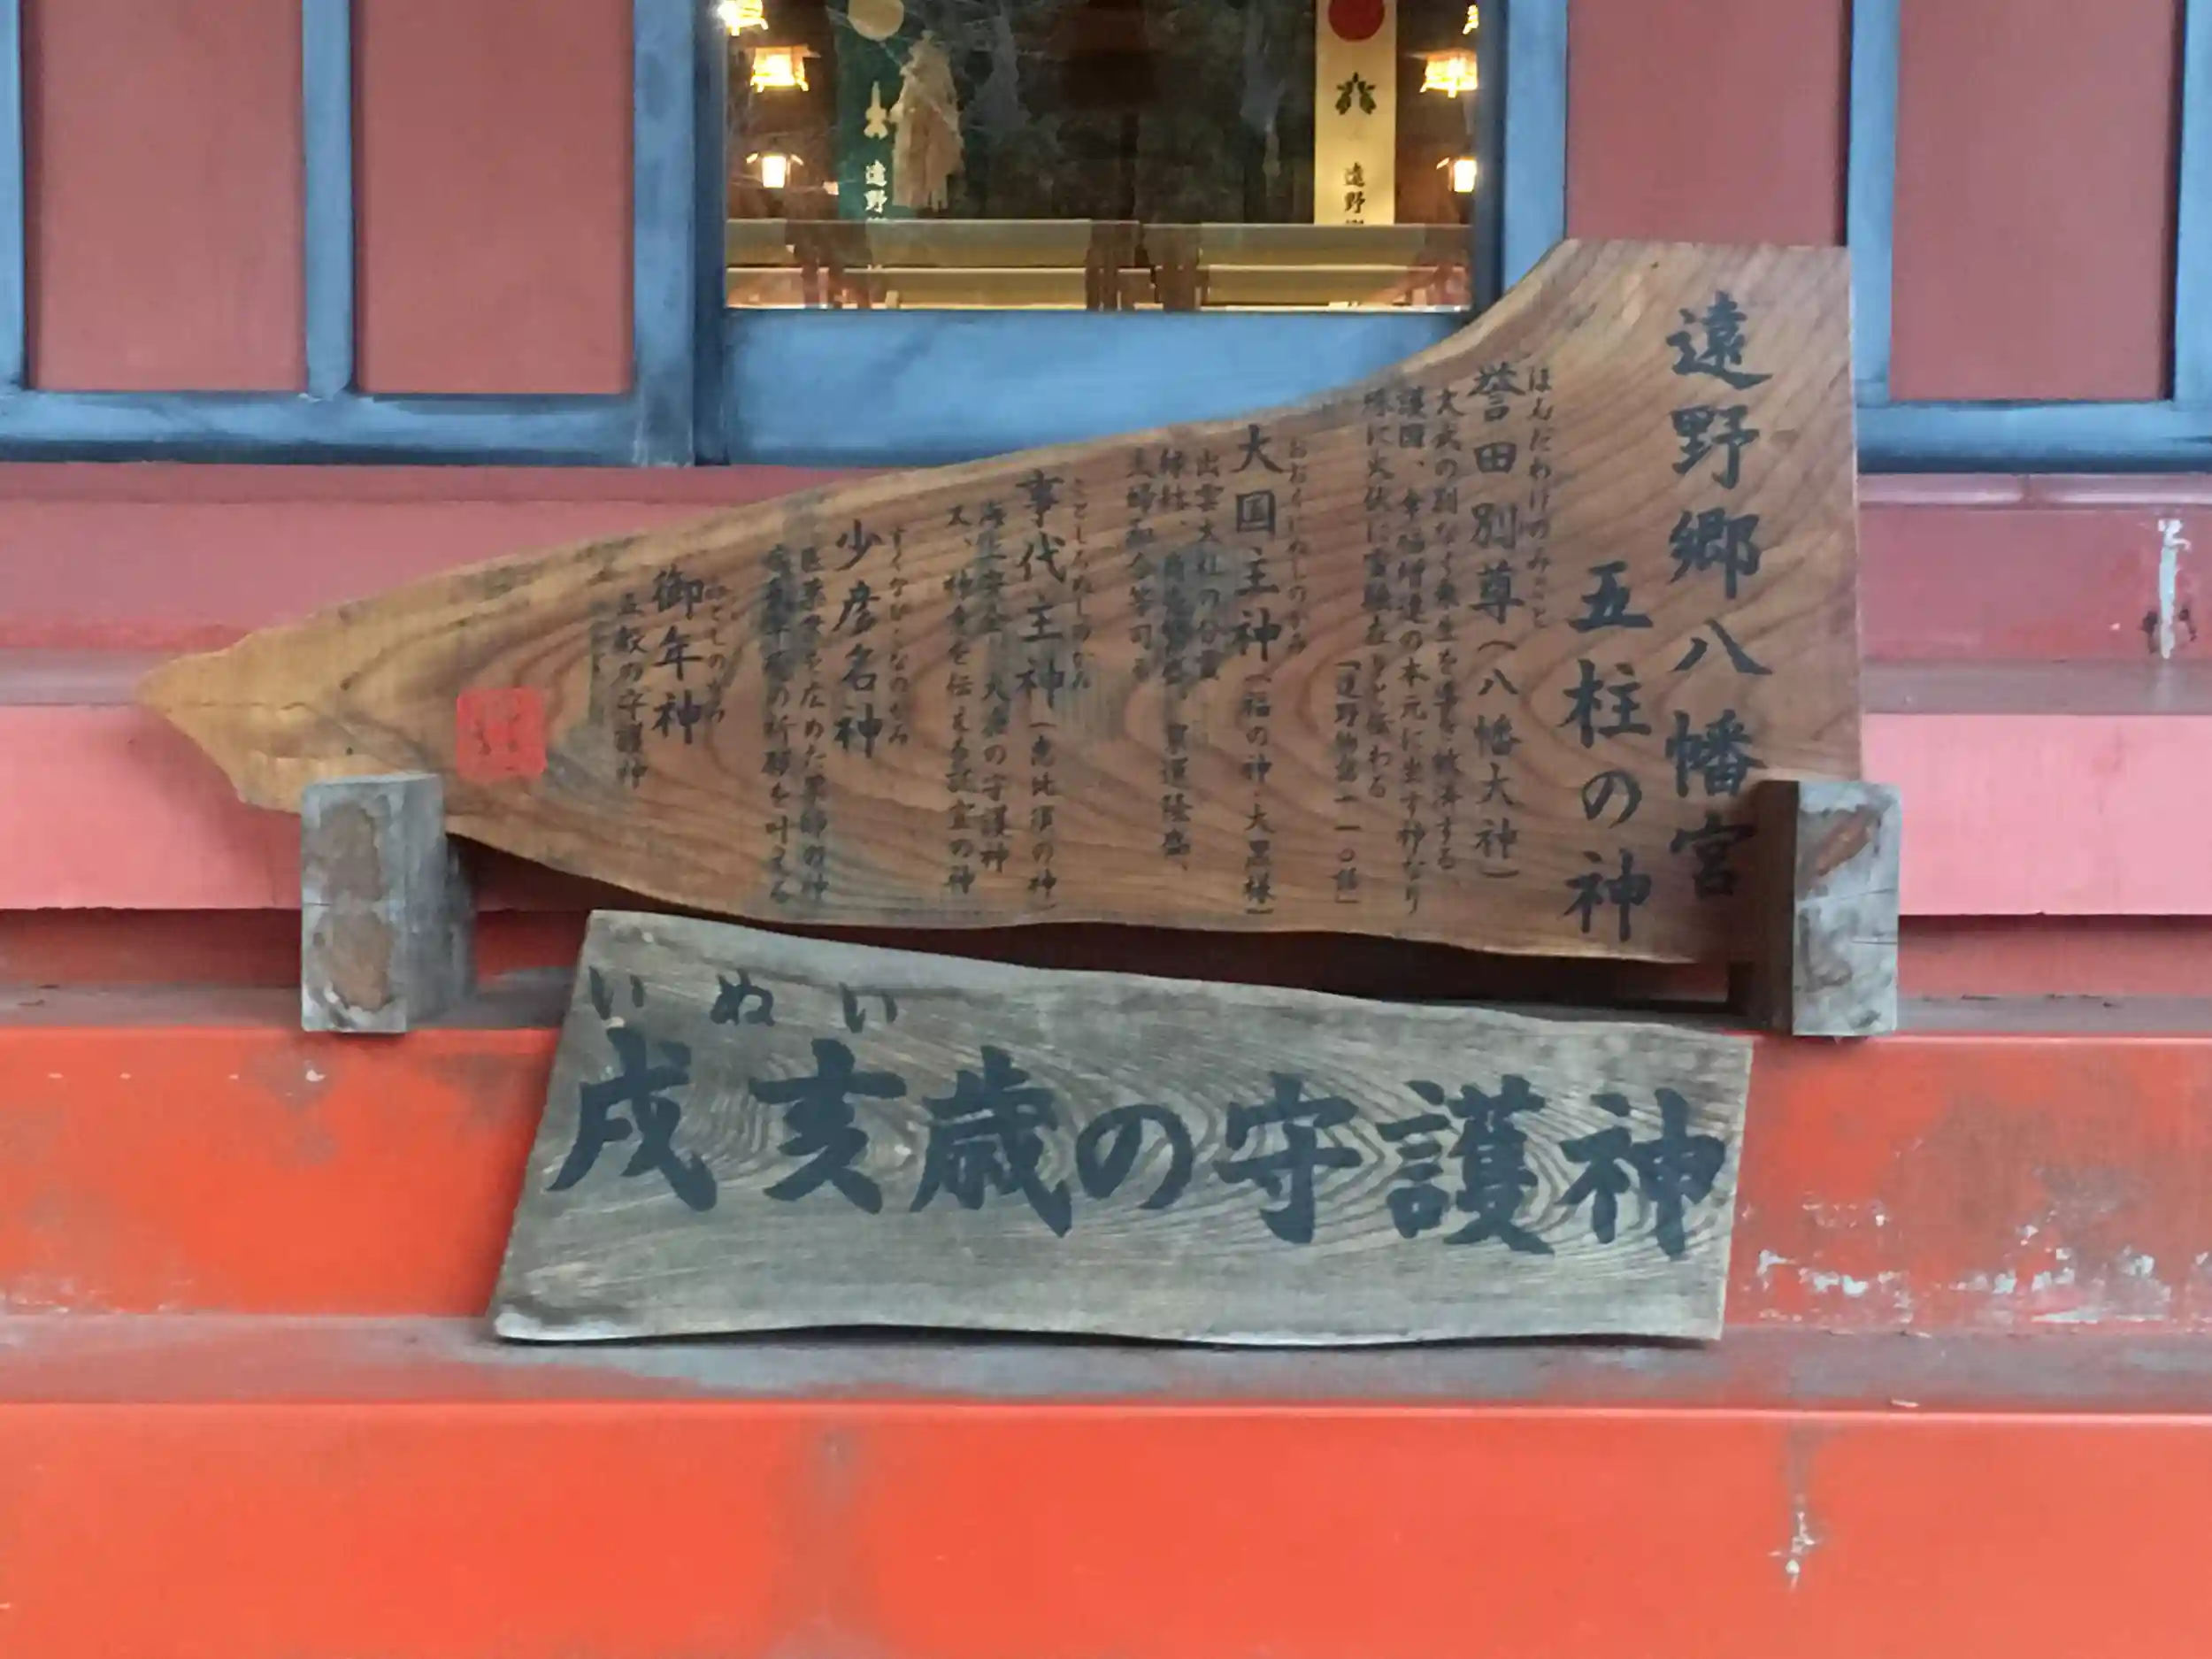 遠野郷八幡宮
五柱の神
ほんだわけのみこと
誉田別尊（八幡大神）
文武の別なく
護国、幸福増進の本元に坐す神なり
殊に火伏に霊験ありと伝わる
「遠野物語一一〇話」
おおくにぬしのかみ
大国主神（福の神・大黒様）
出雲大社の分霊
縁結、家運隆盛、
夫婦和合を司る
ことしろぬしのかみ
事代主神（恵比須の神）
海上安全、大漁の守護神
又、神意を伝える託宣の神
すくなひこなのかみ
少彦名神
医薬業を広めた薬師の神
の祈願を叶える
みとしのかみ
御年神
五穀の守護神
いぬい
戌亥歳の守護神
遠野
遠野